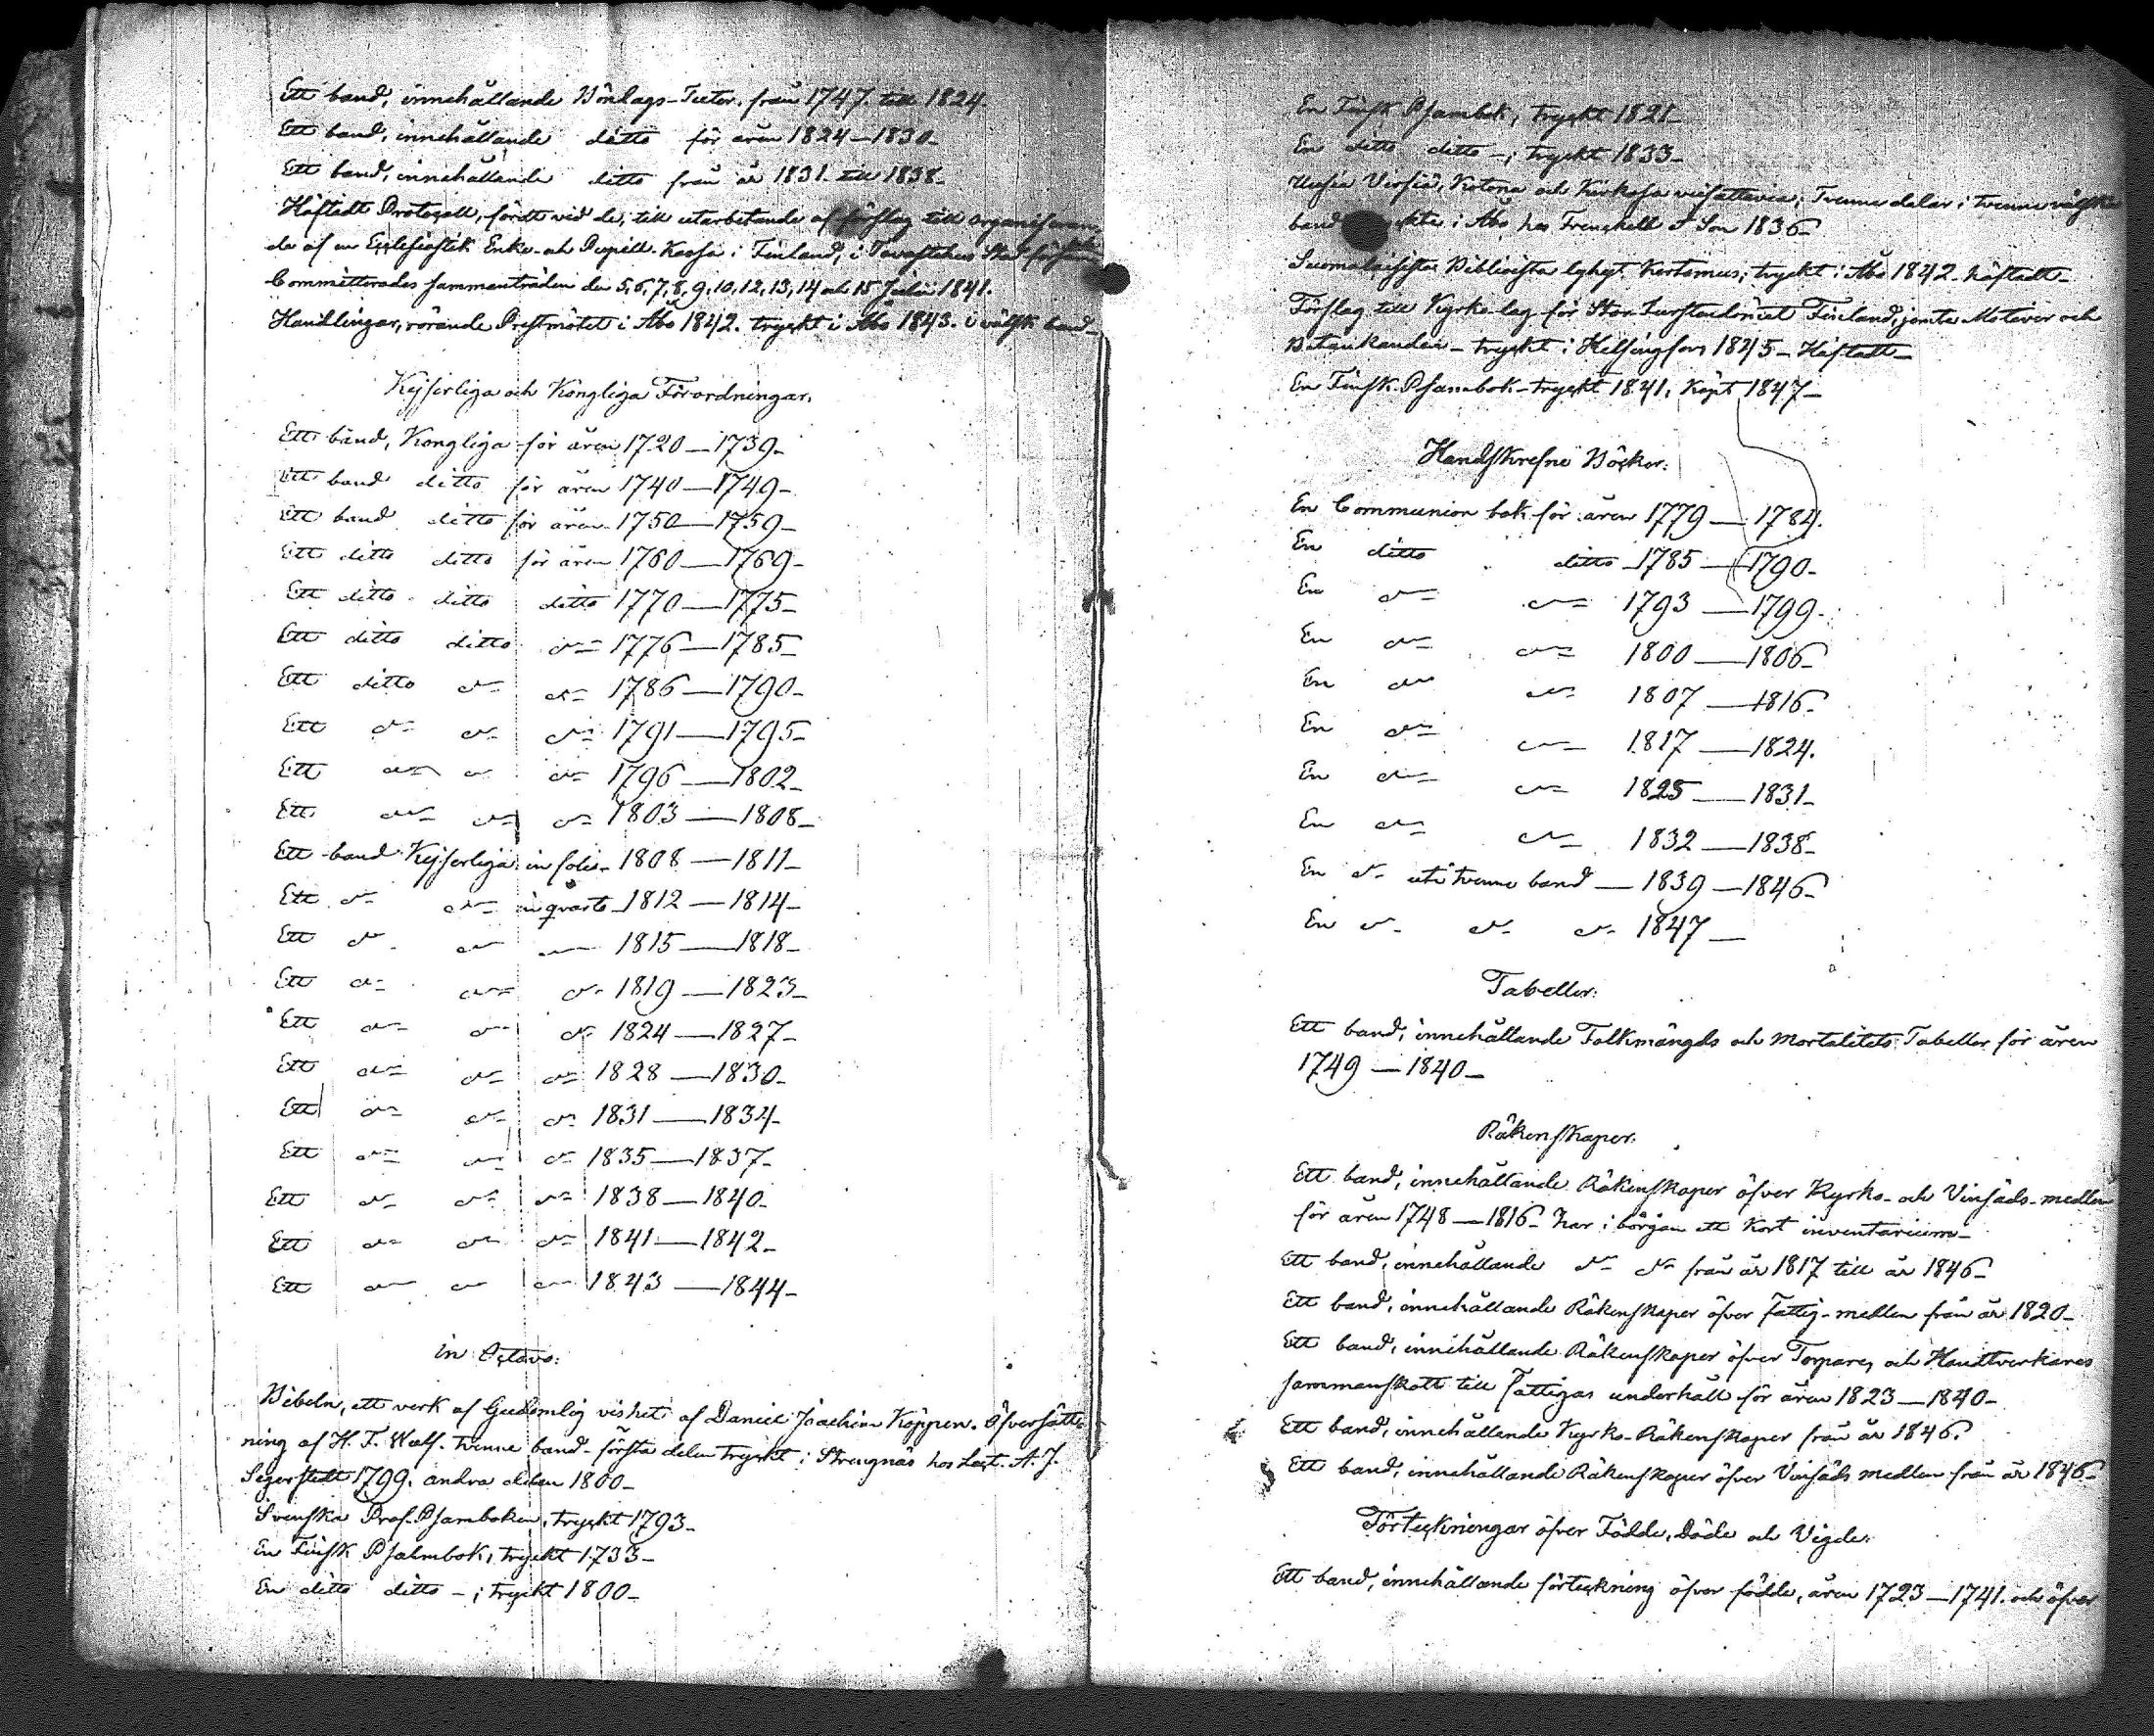 Ett band, innehållande Böndags-Texter, från 1747. till 1824.
Ett band, innehållande ditto för åren 1824—1830.
Ett band, innehållande ditto från år 1831. till 1838.
Häftadt Protocoll, fördt vid de, till utarbetande af förslag till organiseran-
de af en Ecclesiastik Enke- och Pupill-Kassa i Finland, i Tavastehus Stad
Committerades sammanträden den 5, 6, 7, 8, 9, 10, 12, 13, 14 och 15 Julii 1841.
Handlingar, rörande Prestmötet i Åbo 1842. tryckt i Åbo 1843. i välsk band—
Kejserliga och Kongliga Förordningar.
Ett band, Kongliga för åren 1720—1739—
Ett band ditto för åren 1740—1749—
Ett band ditto för åren 1750—1759—
Ett ditto ditto för åren 1760—1769—
Ett ditto ditto ditto 1770—1775—
Ett ditto ditto d:o 1776—1785—
Ett ditto d:o d:o 1786—1790—
Ett d:o d:o d:o 1791—1795—
Ett d:o d:o d:o 1796—1802—
Ett d:o d:o d:o 1803—1808—
Ett band Kejserliga in folio 1808—1811—
Ett d:o d:o in qvarto 1812—1814—
Ett d:o d:o — 1815—1818—
Ett d:o d:o d:o 1819—1823—
Ett d:o d:o d:o 1824—1827—
Ett d:o d:o d:o 1828—1830—
Ett d:o d:o d:o 1831—1834—
Ett d:o d:o d:o 1835—1837—
Ett d:o d:o d:o 1838—1840—
Ett d:o d:o d:o 1841—1842—
Ett d:o d:o d:o 1843—1844—
in Octavo:
Bibeln, ett verk af Gudomlig vishet af Daniel Joachim Köppen. Öfversätt-
ning af H. F. Walf. tvenne band—första delen tryckt i Strengnäs hos Lect. A. J.
Segerstedt 1799. andra delen 1800—
Svenska Prof-Psamboken, tryckt 1793—
En Finsk Psalmbok, tryckt 1733—
En ditto ditto —; tryckt 1800—
En Finsk Psambok, tryckt 1821—
En ditto ditto —; tryckt 1833—
Uusia Virsiä, Kotona och Kirkosa veisattavia; Tvenne delar i tvenne välska
band i Åbo hos Frenckell & Son 1836—
Suomalaisista Biblioista lyhyt Kertomus; tryckt i Åbo 1842. häftadt—
Förslag till Kyrko-lag för Stor-Furstendömet Finland, jemte Motiver och
Betänkanden—tryckt i Helsingfors 1845—Häftadt—
En Finsk Psambok—tryckt 1841, Köpt 1847—
Handskrefne Böcker:
En Communion bok för åren 1779—1784.
En ditto ditto 1785—1790—
En d:o d:o 1793—1799—
En d:o d:o 1800—1806—
En d:o d:o 1807—1816—
En d:o d:o 1817—1824.
En d:o d:o 1825—1831—
En d:o d:o 1832—1838—
En d:o uti tvenne band—1839—1846—
En d:o d:o d:o 1847—
Tabeller:
Ett band, innehållande Folkmängds och Mortalitets Tabeller för åren
1749—1840—
Räkenskaper:
Ett band, innehållande Räkenskaper öfver Kyrko- och Vinsäds-medlen
för åren 1748—1816—har i början ett Kort inventarium—
Ett band, innehållande d:o d:o från år 1817 till år 1846—
Ett band, innehållande Räkenskaper öfver Fattig-medlen från år 1820—
Ett band, innehållande Räkenskaper öfver Torpares och Handtverkares
sammanskott till Fattigas underhåll för åren 1823—1840—
Ett band, innehållande Kyrko-Räkenskaper från år 1846.
Ett band, innehållande Räkenskaper öfver Vinsäds medlen från år 1846—
Förteckningar öfver Födde, Döde och Vigde:
Ett band, innehållande förteckning öfver födde, åren 1723—1741. och öfver